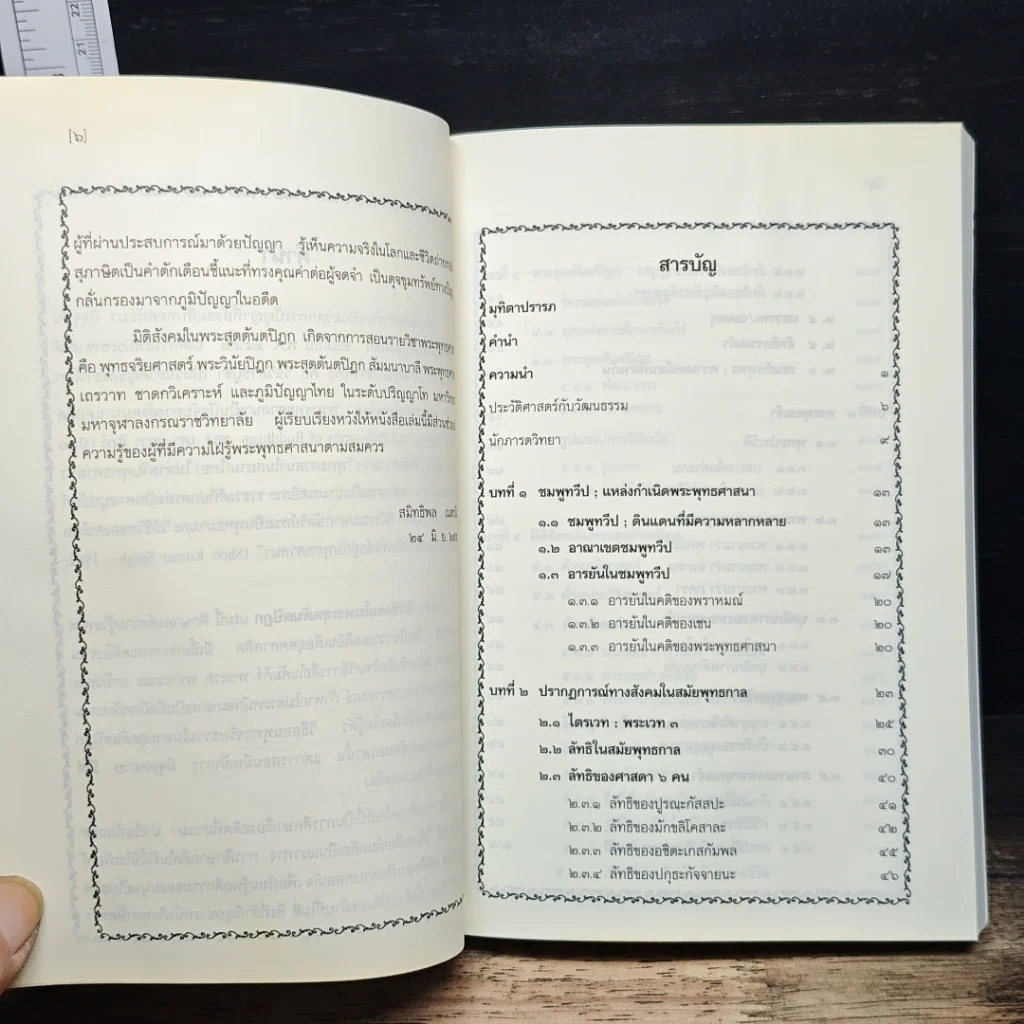 22
21
[๖]
ผู้ที่ผ่านประสบการณ์มาด้วยปัญญา รู้เห็นความจริงในโลกและชีวิต
สุภาษิตเป็นคำตักเตือนชี้แนะที่ทรงคุณค่าต่อผู้จดจำ เป็นดุจขุมทรัพย์ทาง
กลั่นกรองมาจากภูมิปัญญาในอดีต
มิติสังคมในพระสุตตันตปิฎก เกิดจากการสอนรายวิชาพระพุทธ
คือ พุทธจริยศาสตร์ พระวินัยปิฎก พระสุตตันตปิฎก สัมมนาบาลี พระพุทธ
เถรวาท ชาดกวิเคราะห์ และภูมิปัญญาไทย ในระดับปริญญาโท มหา
มหาจุฬาลงกรณราชวิทยาลัย ผู้เรียบเรียงหวังให้หนังสือเล่มนี้มีส่วน
ความรู้ของผู้ที่มีความใฝ่รู้พระพุทธศาสนาตามสมควร
สมิทธิพล
๒๔ มิ.ย.
สารบัญ
มุทิตาปรารภ
คำนำ
ความนำ ๑
ประวัติศาสตร์กับวัฒนธรรม ๖
นักภารตวิทยา ๙
บทที่ ๑ ชมพูทวีป ; แหล่งกำเนิดพระพุทธศาสนา ๑๓
๑.๑ ชมพูทวีป ; ดินแดนที่มีความหลากหลาย ๑๓
๑.๒ อาณาเขตชมพูทวีป ๑๓
๑.๓ อารยันในชมพูทวีป ๑๗
๑.๓.๑ อารยันในคติของพราหมณ์ ๒๐
๑.๓.๒ อารยันในคติของเชน ๒๐
๑.๓.๓ อารยันในคติของพระพุทธศาสนา ๒๐
บทที่ ๒ ปรากฏการณ์ทางสังคมในสมัยพุทธกาล ๒๓
๒.๑ ไตรเวท : พระเวท ๓ ๒๕
๒.๒ ลัทธิในสมัยพุทธกาล ๓๐
๒.๓ ลัทธิของศาสดา ๖ คน ๔๐
๒.๓.๑ ลัทธิของปูรณะกัสสปะ ๔๑
๒.๓.๒ ลัทธิของมักขลิโคสาละ ๔๒
๒.๓.๓ ลัทธิของอชิตะเกสกัมพล ๔๕
๒.๓.๔ ลัทธิของปกุธะกัจจายนะ ๔๖